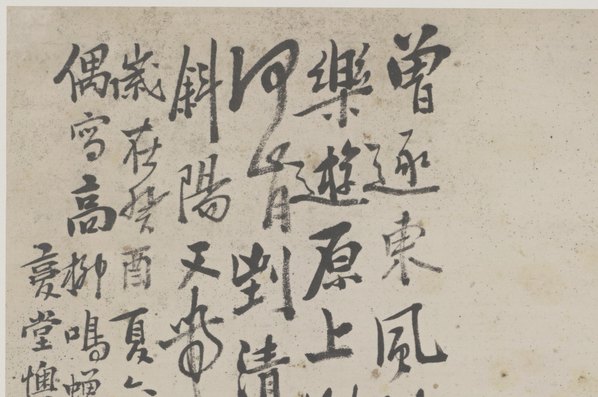 曾逐東風
樂遊原上
何省到清
斜陽又帶
歲在癸酉夏六
偶寫高柳鳴蟬
夔堂